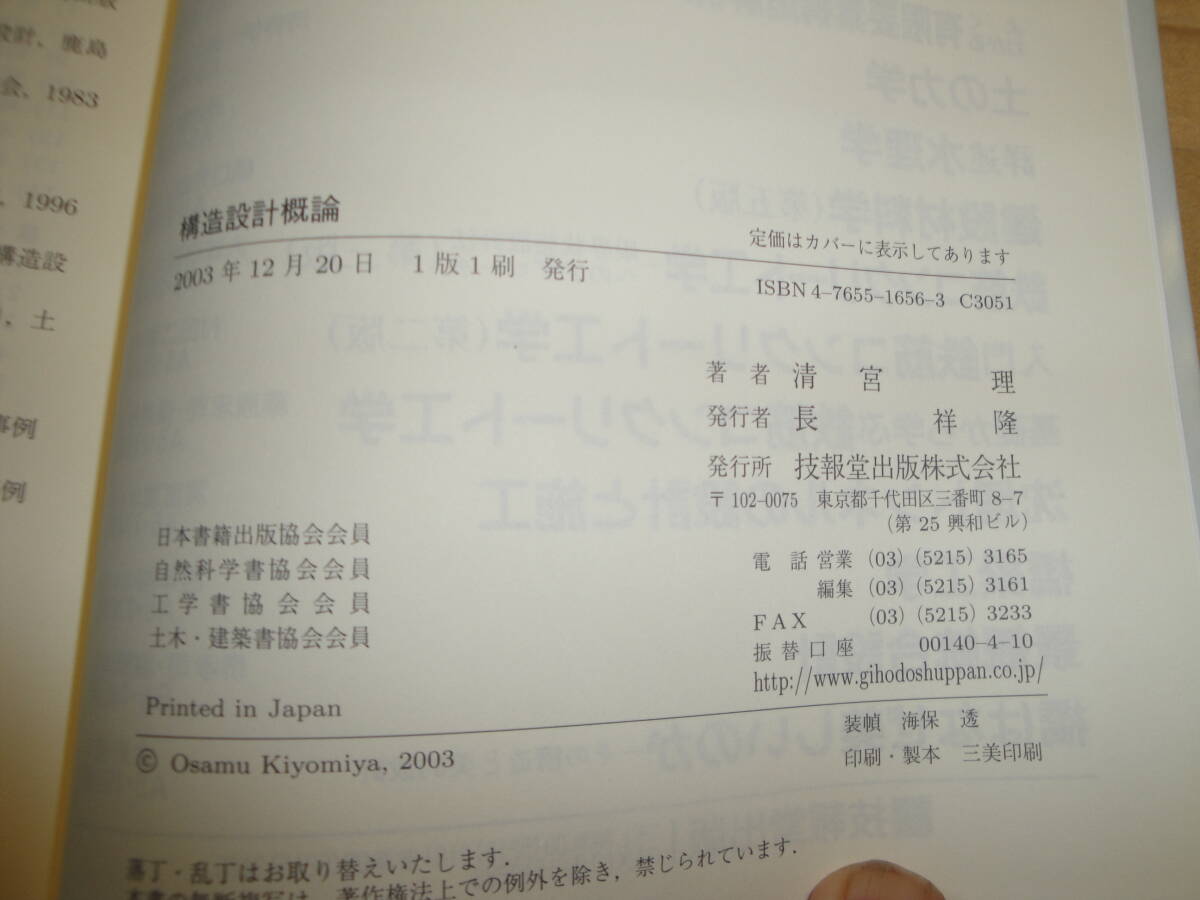 設計，鹿島
会，1983
，1996
構造設
，土
事例
例
構造設計概論
定価はカバーに表示してあります
2003年12月20日　1版1刷　発行
ISBN 4-7655-1656-3 C3051
著　者　清　宮　　理
発行者　長　　祥　隆
発行所　技報堂出版株式会社
〒102-0075　東京都千代田区三番町8-7
(第25興和ビル)
日本書籍出版協会会員
自然科学書協会会員
工学書協会会員
土木・建築書協会会員
電　話　営業　(03)(5215)3165
編集　(03)(5215)3161
FAX　(03)(5215)3233
振替口座　00140-4-10
http://www.gihodoshuppan.co.jp/
Printed in Japan
© Osamu Kiyomiya, 2003
装幀　海保　透
印刷・製本　三美印刷
落丁・乱丁はお取り替えいたします．
本書の無断複写は，著作権法上での例外を除き，禁じられています．